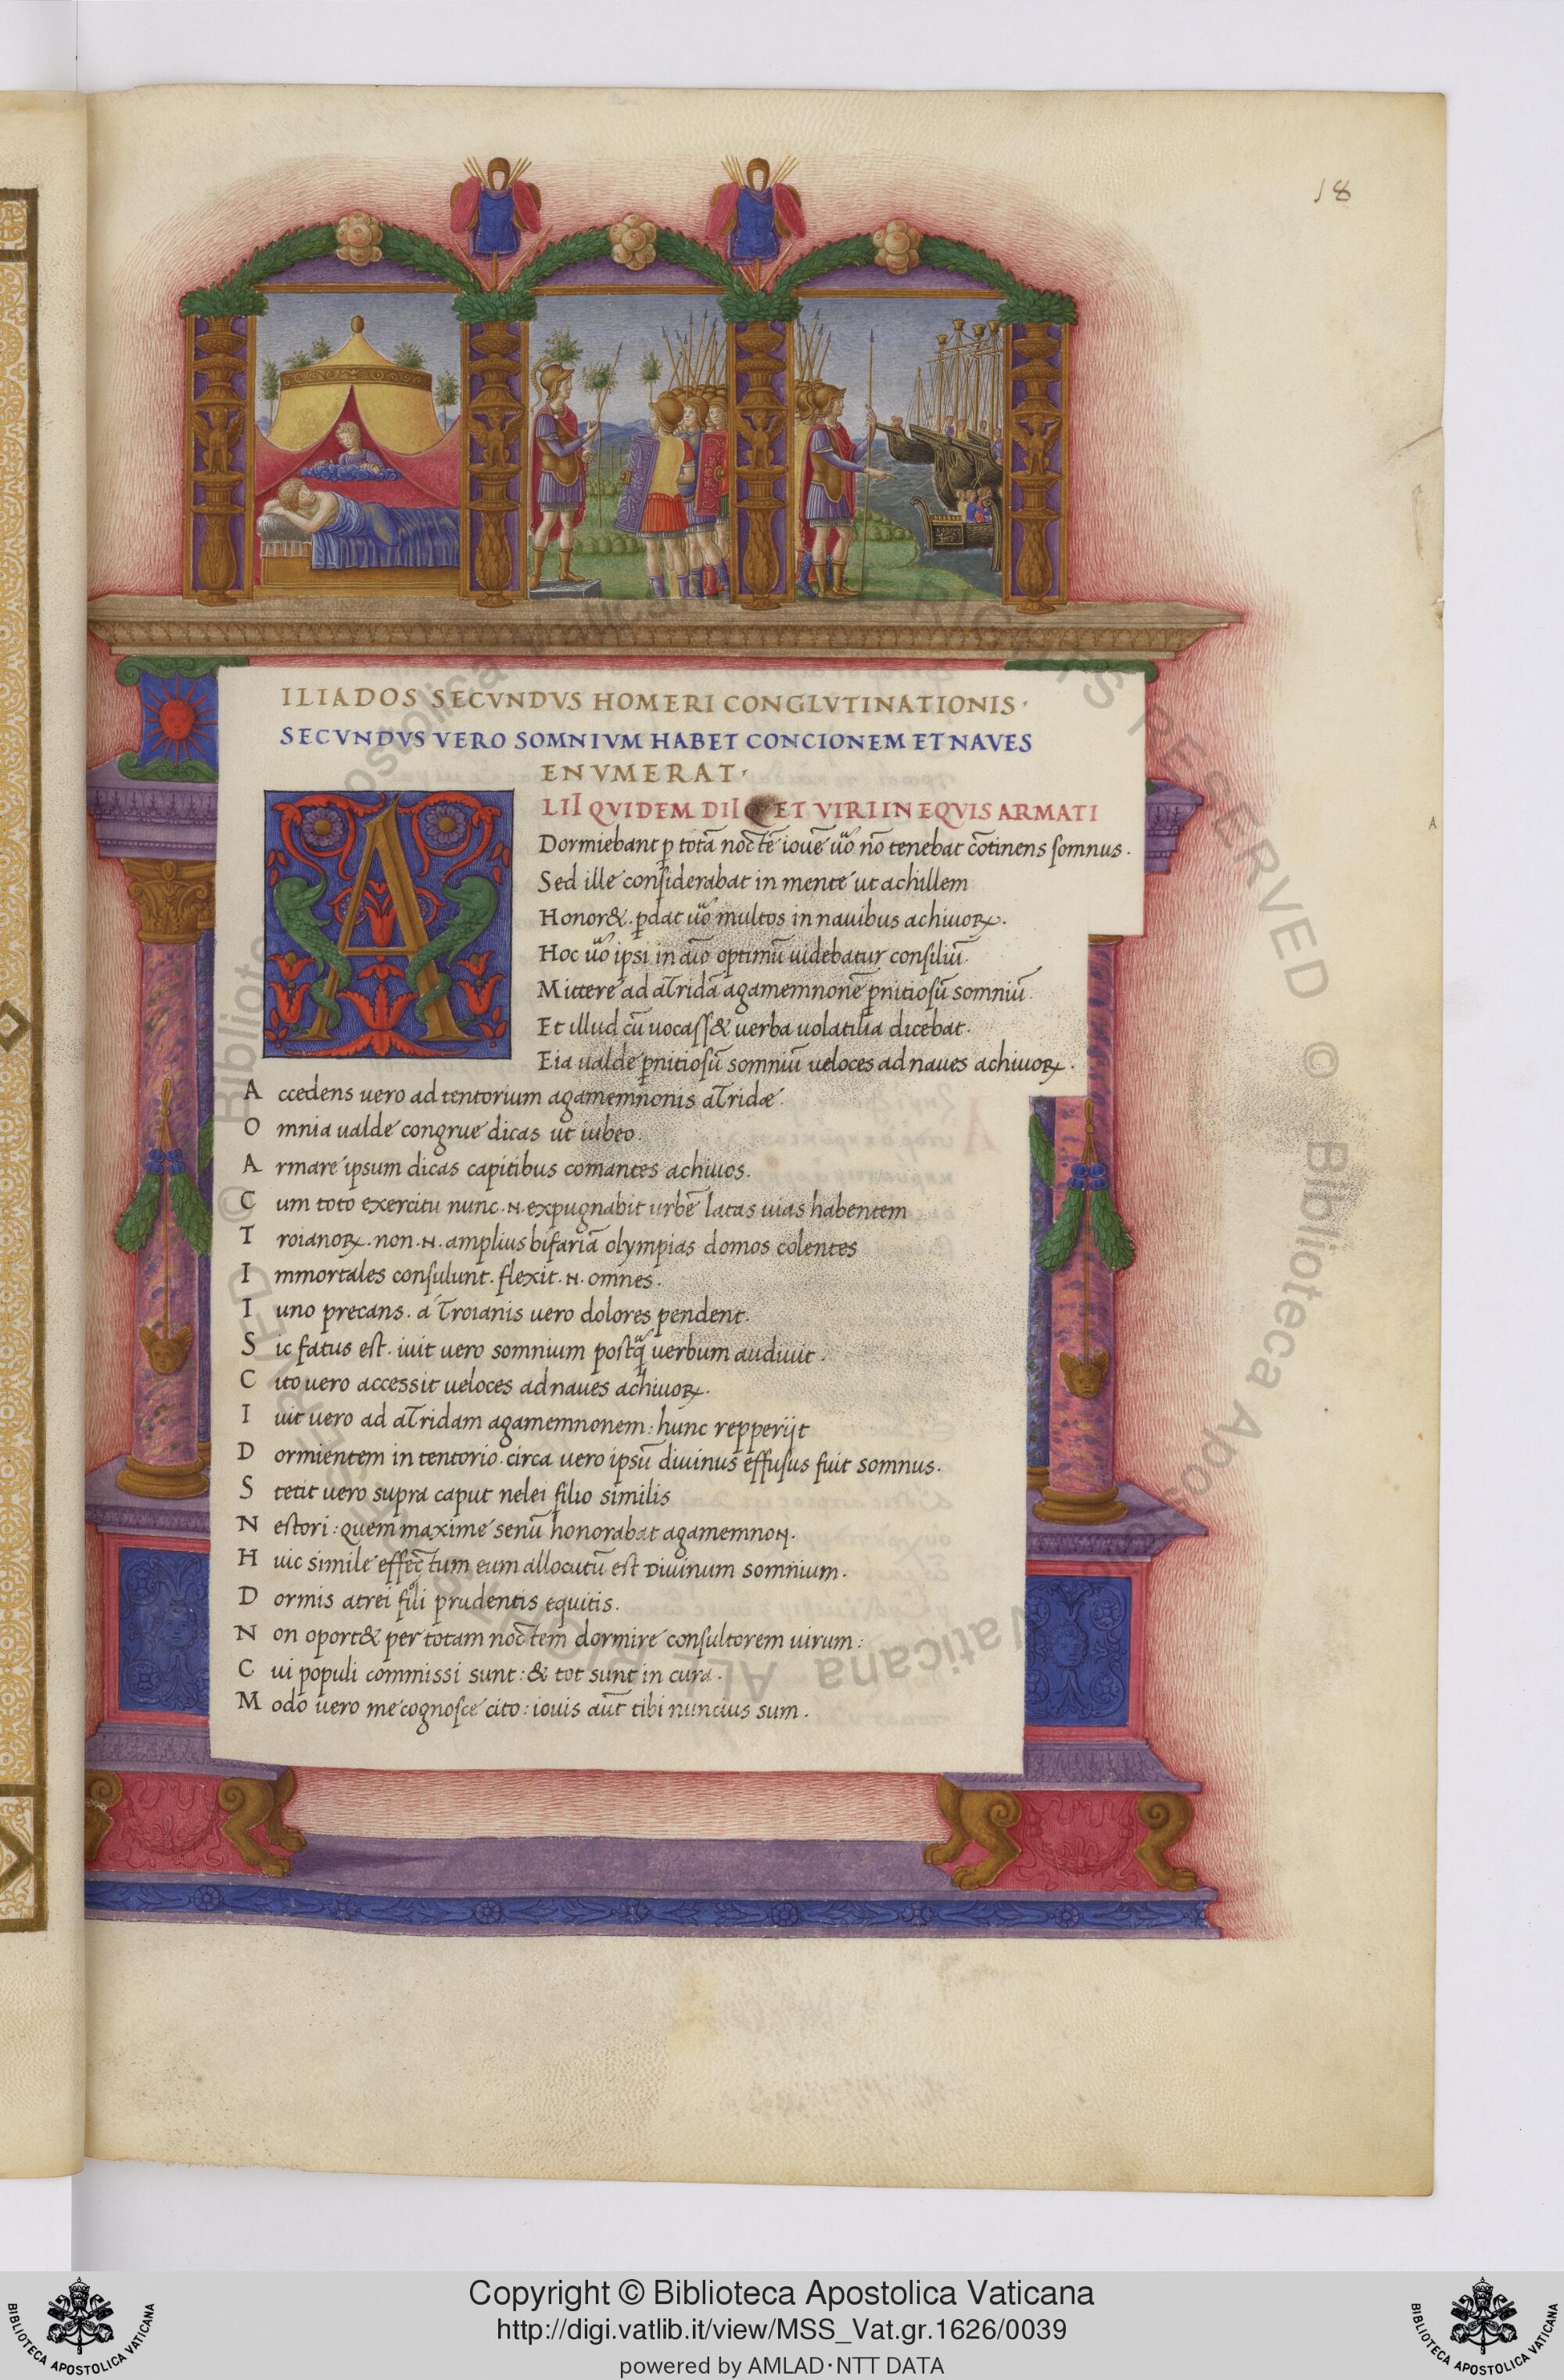 18
ILIADOS SECVNDVS HOMERI CONGLVTINATIONIS·
SECVNDVS VERO SOMNIVM HABET CONCIONEM ET NAVES
ENVMERAT·
ALII QVIDEM DIIQ ET VIRI IN EQVIS ARMATI
Dormiebant p̱ totā noctē iouē úo nō tenebat cōtinens somnus.
Sed ille considerabat in mente ut achillem
Honor&. p̱dat úo multos in nauibus achiuoꝝ.
Hoc úo ipsi in aīo optimū uidebatur consiliū.
Mittere ad atridā agamemnonē p̱nitiosū somniū.
Et illud cū uocass& uerba uolatilia dicebat.
Eia ualde p̱nitiosū somniū ueloces ad naues achiuoꝝ.
Accedens uero ad tentorium agamemnonis atridæ.
Omnia ualde congrue dicas ut iubeo.
Armare ipsum dicas capitibus comantes achiuos.
Cum toto exercitu nunc .N. expugnabit urbē latas uias habentem
Troianoꝝ. non .N. amplius bifariā olympias domos colentes
Immortales consulunt. flexit .N. omnes.
Iuno precans. a Troianis uero dolores pendent.
Sic fatus est. iuit uero somnium postq̃ uerbum audiuit.
Cito uero accessit ueloces ad naues achiuoꝝ.
Iuit uero ad atridam agamemnonem: hunc repperijt
Dormientem in tentorio. circa uero ipsū diuinus effusus fuit somnus.
Stetit uero supra caput nelei filio similis
Nestori: quem maxime senū honorabat agamemnoN.
Huic simile effectum eum allocutū est Diuinum somnium.
Dormis atrei fili prudentis equitis.
Non oport& per totam noctem dormire consultorem uirum:
Cui populi commissi sunt: & tot sunt in cura.
Modo uero me cognosce cito: iouis aūt tibi nuncius sum.
A
Copyright © Biblioteca Apostolica Vaticana
http://digi.vatlib.it/view/MSS_Vat.gr.1626/0039
powered by AMLAD·NTT DATA
BIBLIOTECA APOSTOLICA VATICANA
BIBLIOTECA APOSTOLICA VATICANA